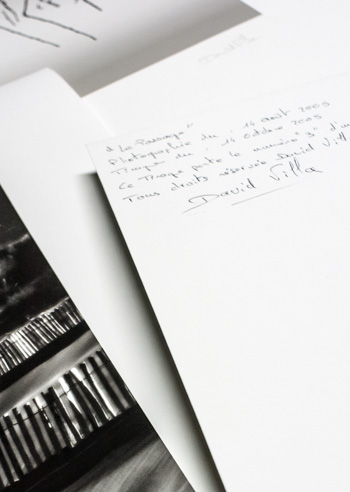 David Villa
"Le Passage"
photographie du : 14 août 2005
Tirage du : 14 octobre 2005
Ce tirage porte le numéro "3" d'un
Tous droits réservés David Vill
David Villa